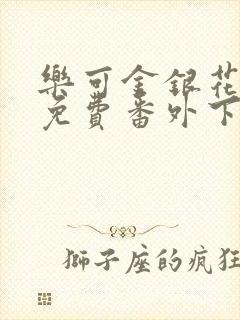 樂可金銀花
免費番外下
獅子座的疯狂